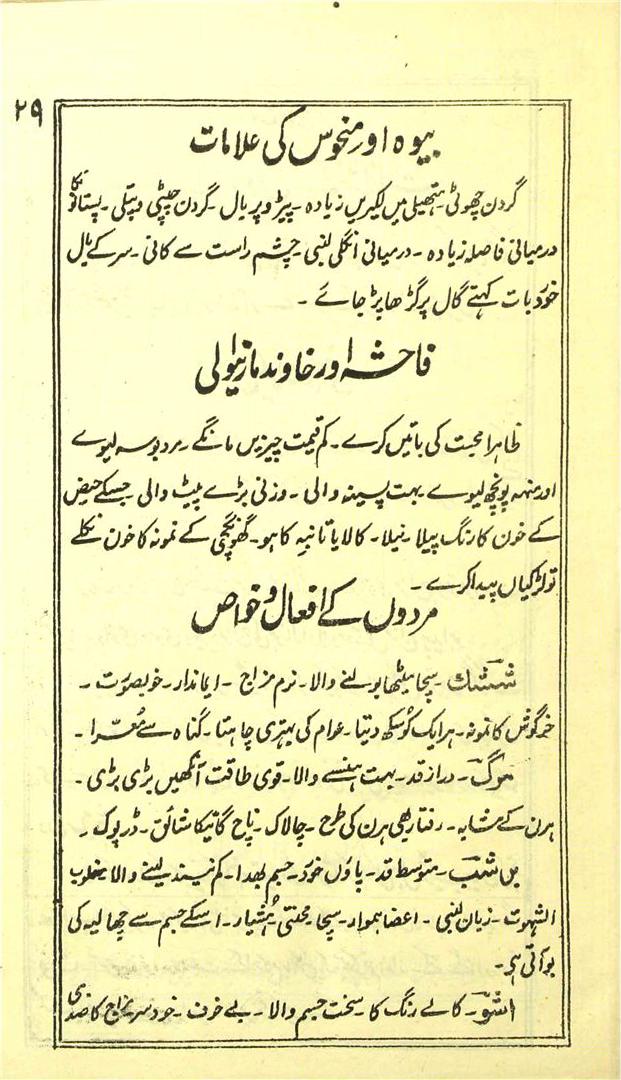 ۲۹
بیوہ اور منحوس کی علامات
گردن چھوٹی ہتھیلی میں لکیریں زیادہ۔ پیڑو پر بال۔ گردن چپٹی و پتلی۔ پستانوں کا
درمیانی فاصلہ زیادہ۔ درمیانی انگلی لنبی۔ چشم راست سے کانی۔ سر کے بال
خورد بات کہتے گال پر گڑھا پڑ جائے۔
فاحشہ اور خاوند مارنیوالی
ظاہرا محبت کی باتیں کرے۔ کم قیمت چیزیں مانگے۔ مرد بوسہ لیوے
اور منہہ پونچھ لیوے بہت پسینہ والی۔ وزنی بڑے پیٹ والی جسکے حیض
کے خون کا رنگ پیلا۔ نیلا۔ کالا یا تانبہ کا ہو۔ گھونگچی کے نمونہ کا خون نکلے
تو لڑکیاں پیدا کرے۔
مردوں کے افعال و خواص
ششک۔ سچا میٹھا بولنے والا۔ نرم مزاج۔ ایماندار۔ خوبصورت۔
خرگوش کا نمونہ۔ ہر ایک کو سکھ دیتا۔ عوام کی بہتری چاہتا۔ گناہ سے مُعرّا۔
مرگ۔ دراز قد۔ بہت ہنسنے والا۔ قوی طاقت آنکھیں بڑی بڑی۔
ہرن کے مشابہ۔ رفتار بھی ہرن کی طرح۔ چالاک۔ ناچ گانیکا شائق۔ ڈرپوک۔
برشب۔ متوسط قد۔ پاؤں خورد۔ جسم بھدا۔ کم نیند لینے والا مغلوب
الشہوت۔ زبان لنبی۔ اعضا ہموار۔ سچا۔ محنتی ہُشیار۔ اسکے جسم سے چھالیہ کی
بو آتی ہے۔
اشو۔ کالے رنگ کا۔ سخت جسم والا۔ بے خوف۔ خود سر مزاج کا ضدی